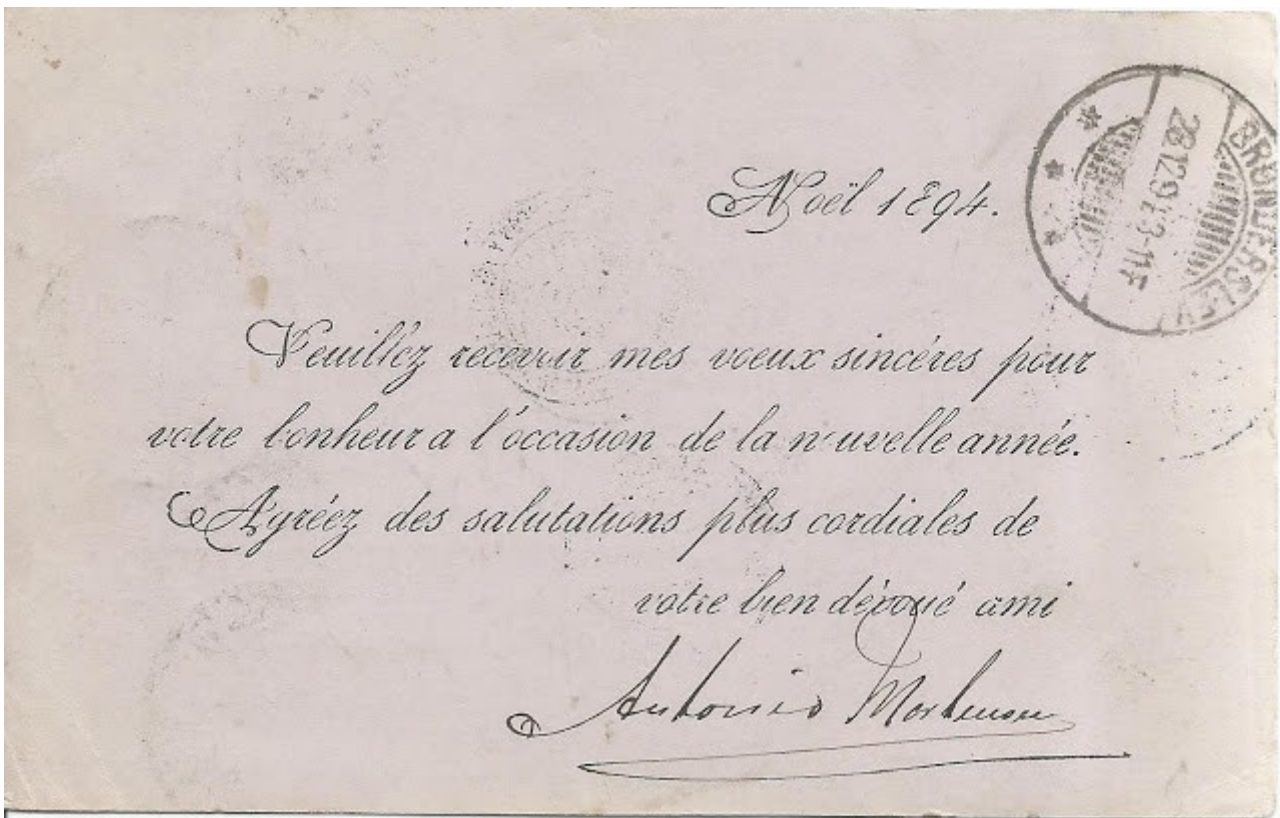 Noël 1894.
BRØNDERSLEV
28.12.9 8-11F
Veuilléz recevoir mes voeux sincéres pour
votre bonheur a l'occasion de la nouvelle année.
Agréez des salutations plus cordiales de
votre bien dévoué ami
Antonio Mortensen